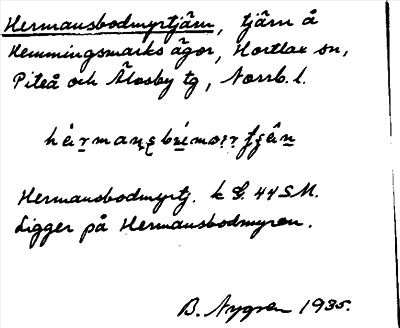 Hermansbodmyrtjärn, tjärn å
Hemmingsmarks ägor, Hortlax sn,
Piteå och Älvsby tg, Norrb. l.
Hermansbodmyrtj. k G. 44 S.M.
Ligger på Hermansbodmyren.
B. Nygren 1935.